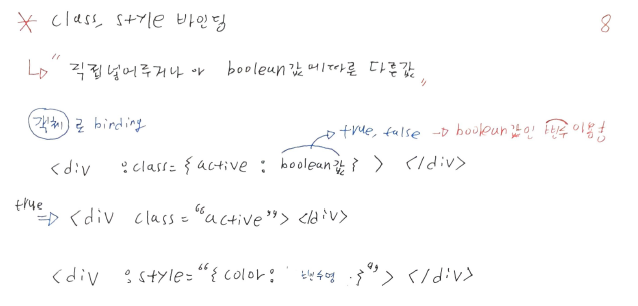 * class, style 바인딩
8
↳ "직접넣어주거나 아 boolean값에따른 다른값"
객체로 binding
true, false → boolean값인 변수 이용
<div :class={active : boolean값} > </div>
true ⇒ <div class="active"> </div>
<div :style="{color: 변수명 }"> </div>